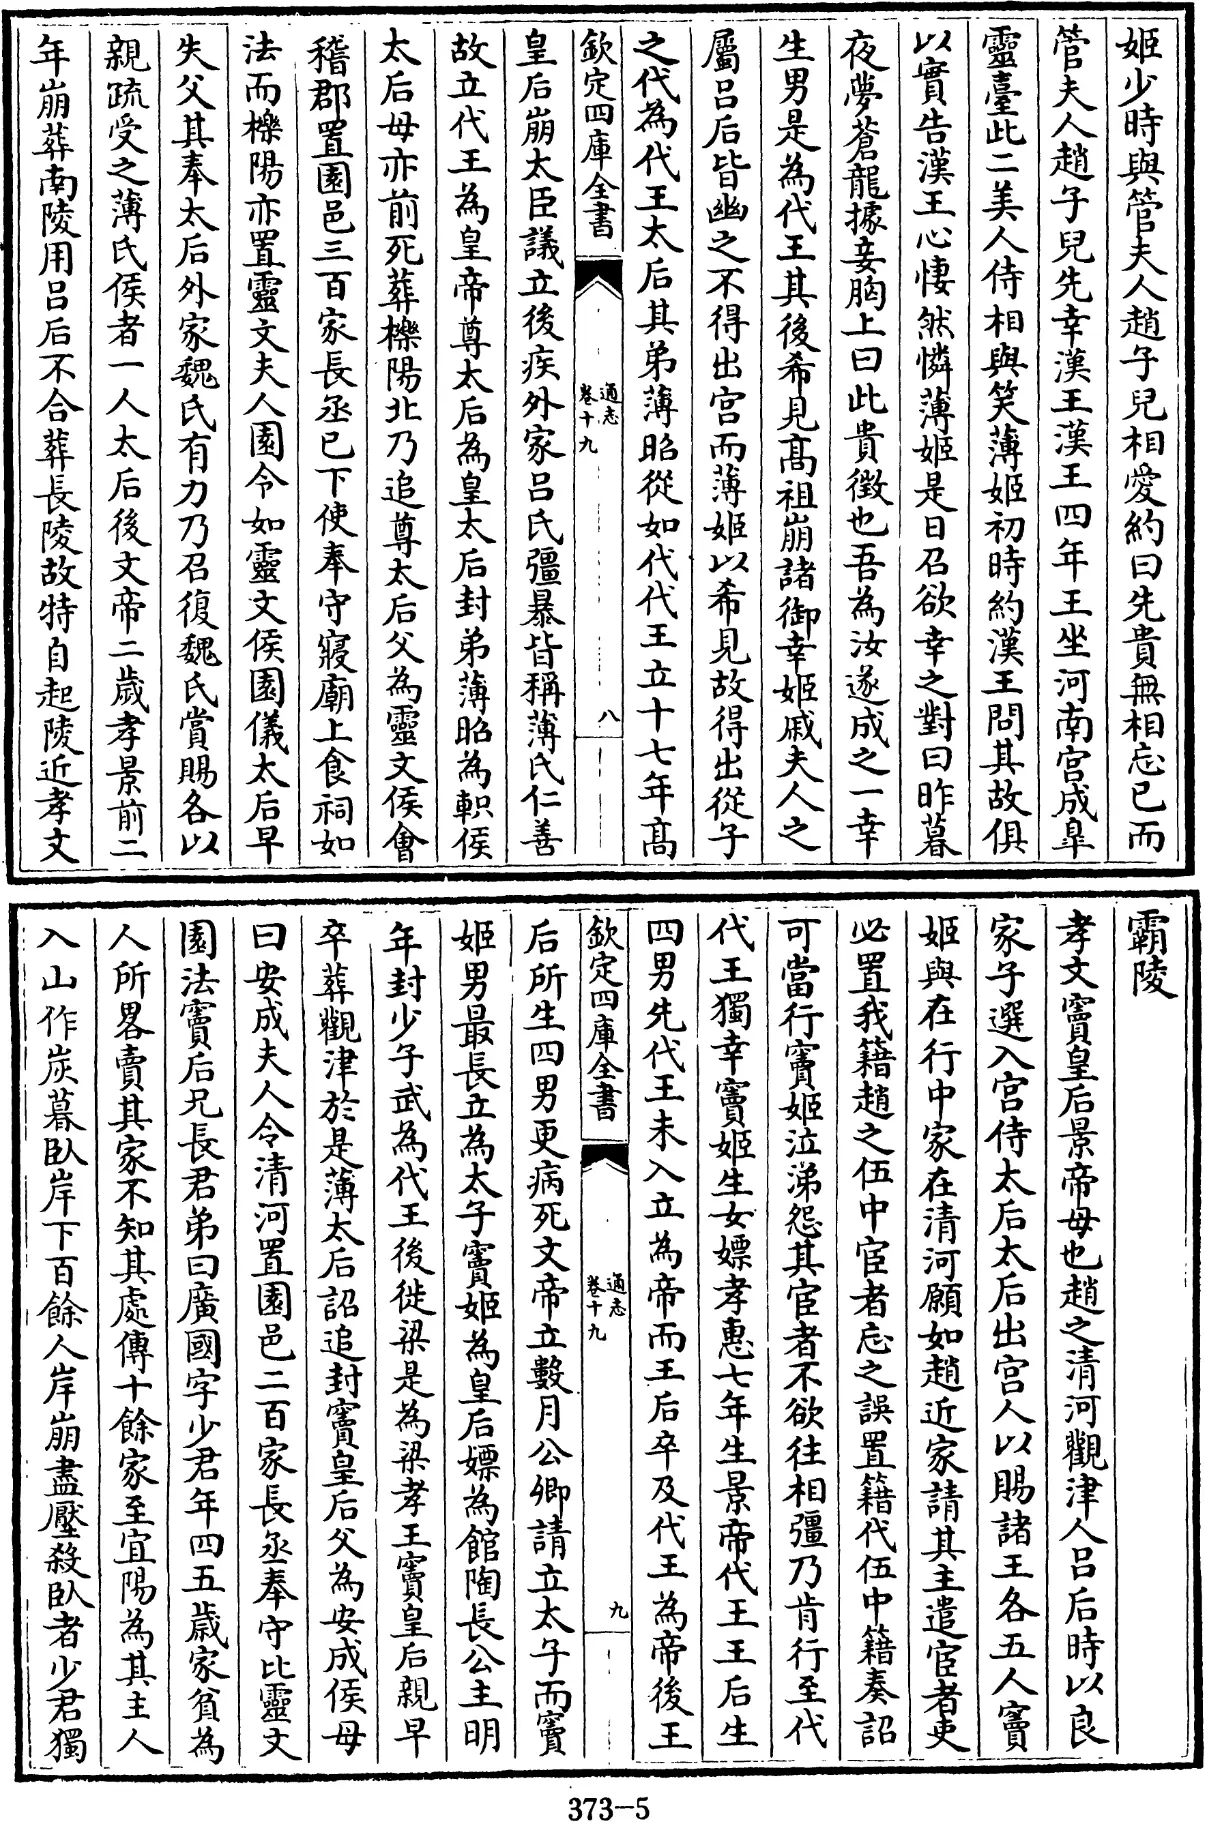 姬少時與管夫人趙子兒相愛約曰先貴無相忘已而
管夫人趙子兒先幸漢王漢王四年王坐河南宮成臯
靈臺此二美人侍相與笑薄姬初時約漢王問其故俱
以實告漢王心悽然憐薄姬是日召欲幸之對曰昨暮
夜夢蒼龍據妾胸上曰此貴徵也吾為汝遂成之一幸
生男是為代王其後希見髙祖崩諸御幸姬戚夫人之
屬呂后皆幽之不得出宫而薄姬以希見故得出從子
之代為代王太后其弟薄昭從如代代王立十七年髙
欽定四庫全書
通志
卷十九
八
皇后崩大臣議立後疾外家呂氏彊暴皆稱薄氏仁善
故立代王為皇帝尊太后為皇太后封弟薄昭為軹侯
太后母亦前死葬櫟陽北乃追尊太后父為靈文侯會
稽郡置園邑三百家長丞已下使奉守寢廟上食祠如
法而櫟陽亦置靈文夫人園令如靈文侯園儀太后早
失父其奉太后外家魏氏有力乃召復魏氏賞賜各以
親疏受之薄氏侯者一人太后後文帝二歲孝景前二
年崩葬南陵用呂后不合葬長陵故特自起陵近孝文
霸陵
孝文竇皇后景帝母也趙之清河觀津人呂后時以良
家子選入宫侍太后太后出宫人以賜諸王各五人竇
姬與在行中家在清河願如趙近家請其主遣宦者吏
必置我籍趙之伍中宦者忘之誤置籍代伍中籍奏詔
可當行竇姬泣涕怨其宦者不欲往相彊乃肯行至代
代王獨幸竇姬生女嫖孝惠七年生景帝代王王后生
四男先代王未入立為帝而王后卒及代王為帝後王
欽定四庫全書
通志
卷十九
九
后所生四男更病死文帝立數月公卿請立太子而竇
姬男最長立為太子竇姬為皇后嫖為館陶長公主明
年封少子武為代王後徙梁是為梁孝王竇皇后親早
卒葬觀津於是薄太后詔追封竇皇后父為安成侯母
曰安成夫人令清河置園邑二百家長丞奉守比靈文
園法竇后兄長君弟曰廣國字少君年四五歲家貧為
人所畧賣其家不知其處傳十餘家至宜陽為其主人
入山作炭暮臥岸下百餘人岸崩盡壓殺臥者少君獨
373-5